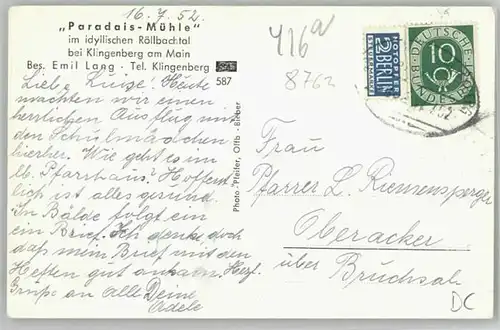 16.7.52.
„Paradais-Mühle"
im idyllischen Röllbachtal
bei Klingenberg am Main
Bes. Emil Lang · Tel. Klingenberg
587
Liebe Luise! Heute
machten wir einen
herrlichen Ausflug mit
den Schulmädchen
hierher. Wie geht's im
lb. Pfarrhaus? Hoffent
lich ist alles gesund.
In Bälde folgt ein
ein Brief. Ich denke doch
daß mein Brief mit den
Heften gut ankam. Herzl.
Grüße an alle Deine
Adele
Photo-Pfeifer, Offb.-Bieber
416a
8762
NOTOPFER
2 BERLIN
STEUERMARKE
DEUTSCHE
BUNDESPOST
10
Frau
Pfarrer L. Riemensperger
Oberacker
über Bruchsal
DC